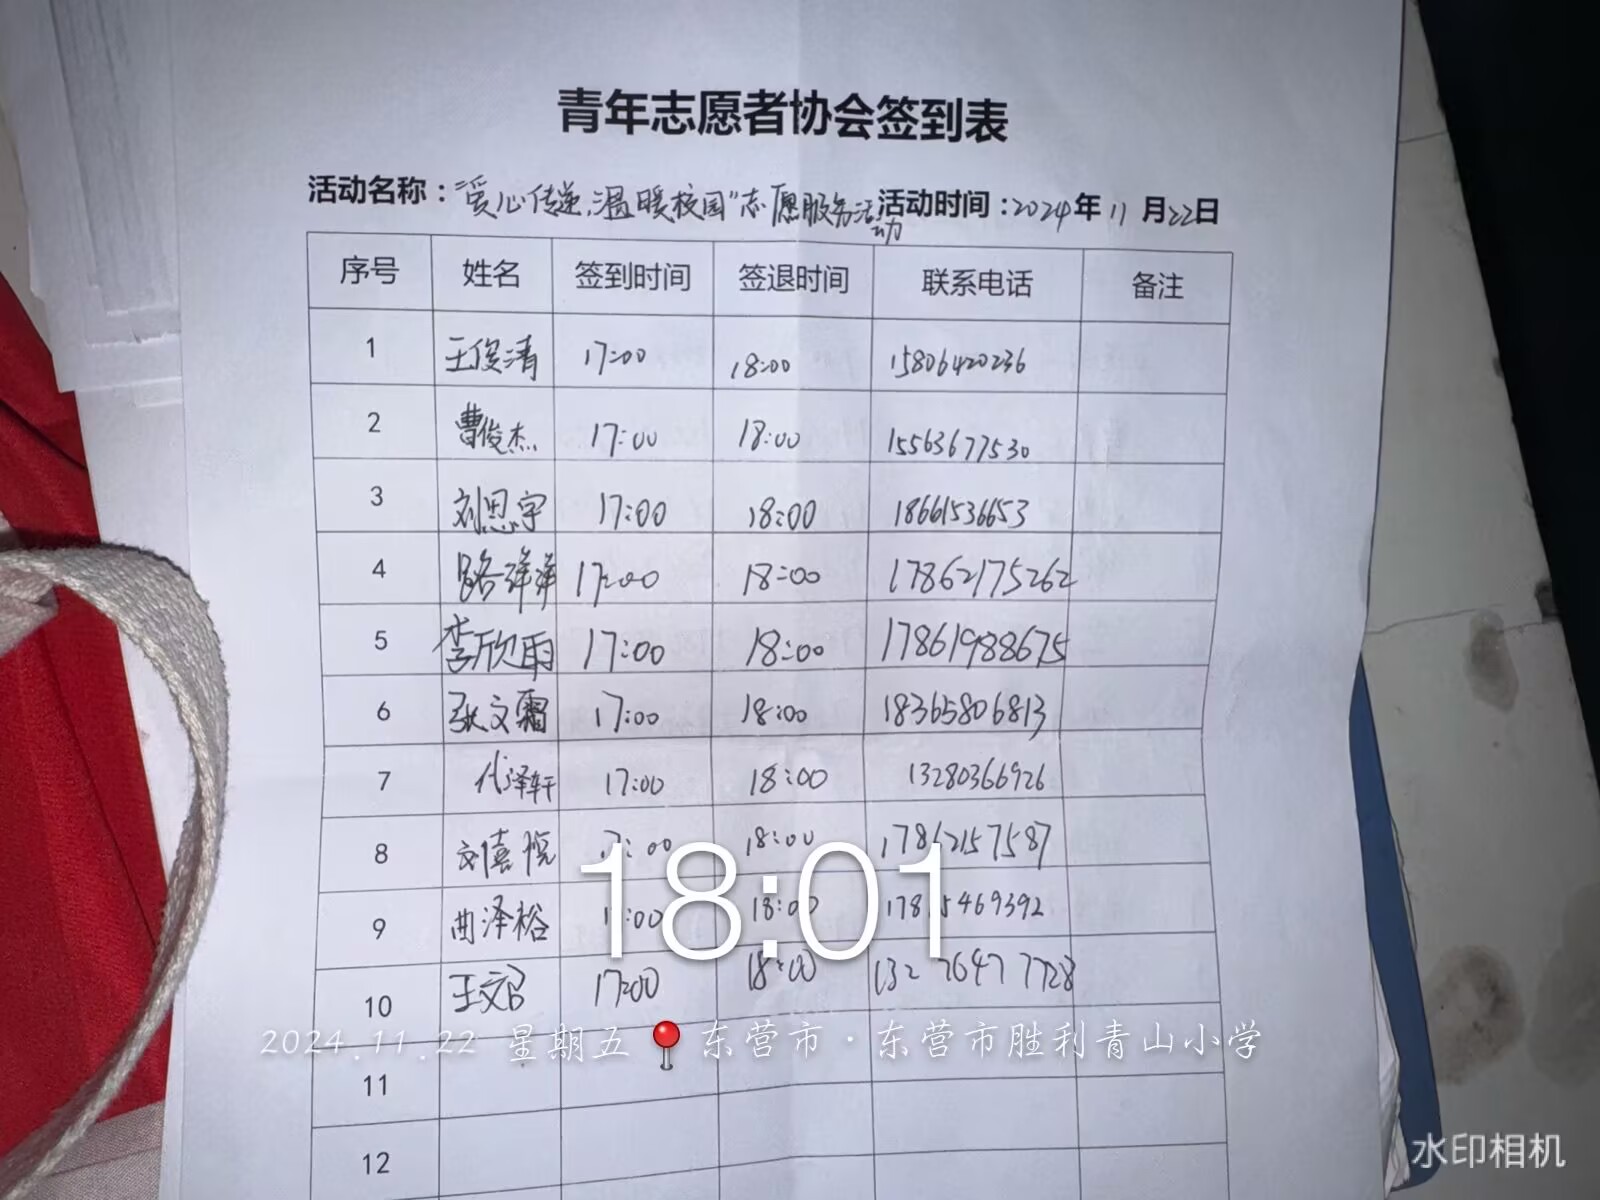 青年志愿者协会签到表
活动名称：“爱心传递，温暖校园”志愿服务活动 活动时间：2024年11月22日
序号 姓名 签到时间 签退时间 联系电话 备注
1 王俊清 17:00 18:00 15806420236
2 曹俊杰 17:00 18:00 15563677530
3 刘思宇 17:00 18:00 18661536653
4 路洋洋 17:00 18:00 17862175262
5 李欣雨 17:00 18:00 17861988675
6 张文霜 17:00 18:00 18365806813
7 代泽轩 17:00 18:00 13280366926
8 刘熹悦 17:00 18:00 17862157587
9 曲泽裕 17:00 18:00
10 王文召 17:00 18:00
18:01
2024.11.22 星期五 东营市·东营市胜利青山小学
11
12
水印相机